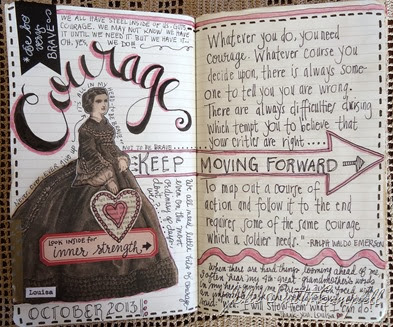 WE ALL HAVE STEEL INSIDE OF US: IT IS OUR
COURAGE. WE MAY NOT KNOW WE HAVE
IT UNTIL WE NEED IT BUT WE HAVE IT...
OH, YES, WE DO!!
you are very
BRAVE
Courage
NOT TO BE BRAVE
KEEP
We all need little bits of courage
even on the most
ordinary of days
Look inside for
inner strength
Louisa
OCTOBER 2013
Whatever you do, you need
courage. Whatever course you
decide upon, there is always some-
one to tell you you are wrong.
There are always difficulties arising
which tempt you to believe that
your critics are right.....
MOVING FORWARD
To map out a course of
action and follow it to the end
requires some of the same courage
which a soldier needs." -RALPH WALDO EMERSON
When there are hard things looming ahead of me
I often hear my great grandmother's words
in my head
"I will show them what I can do!"